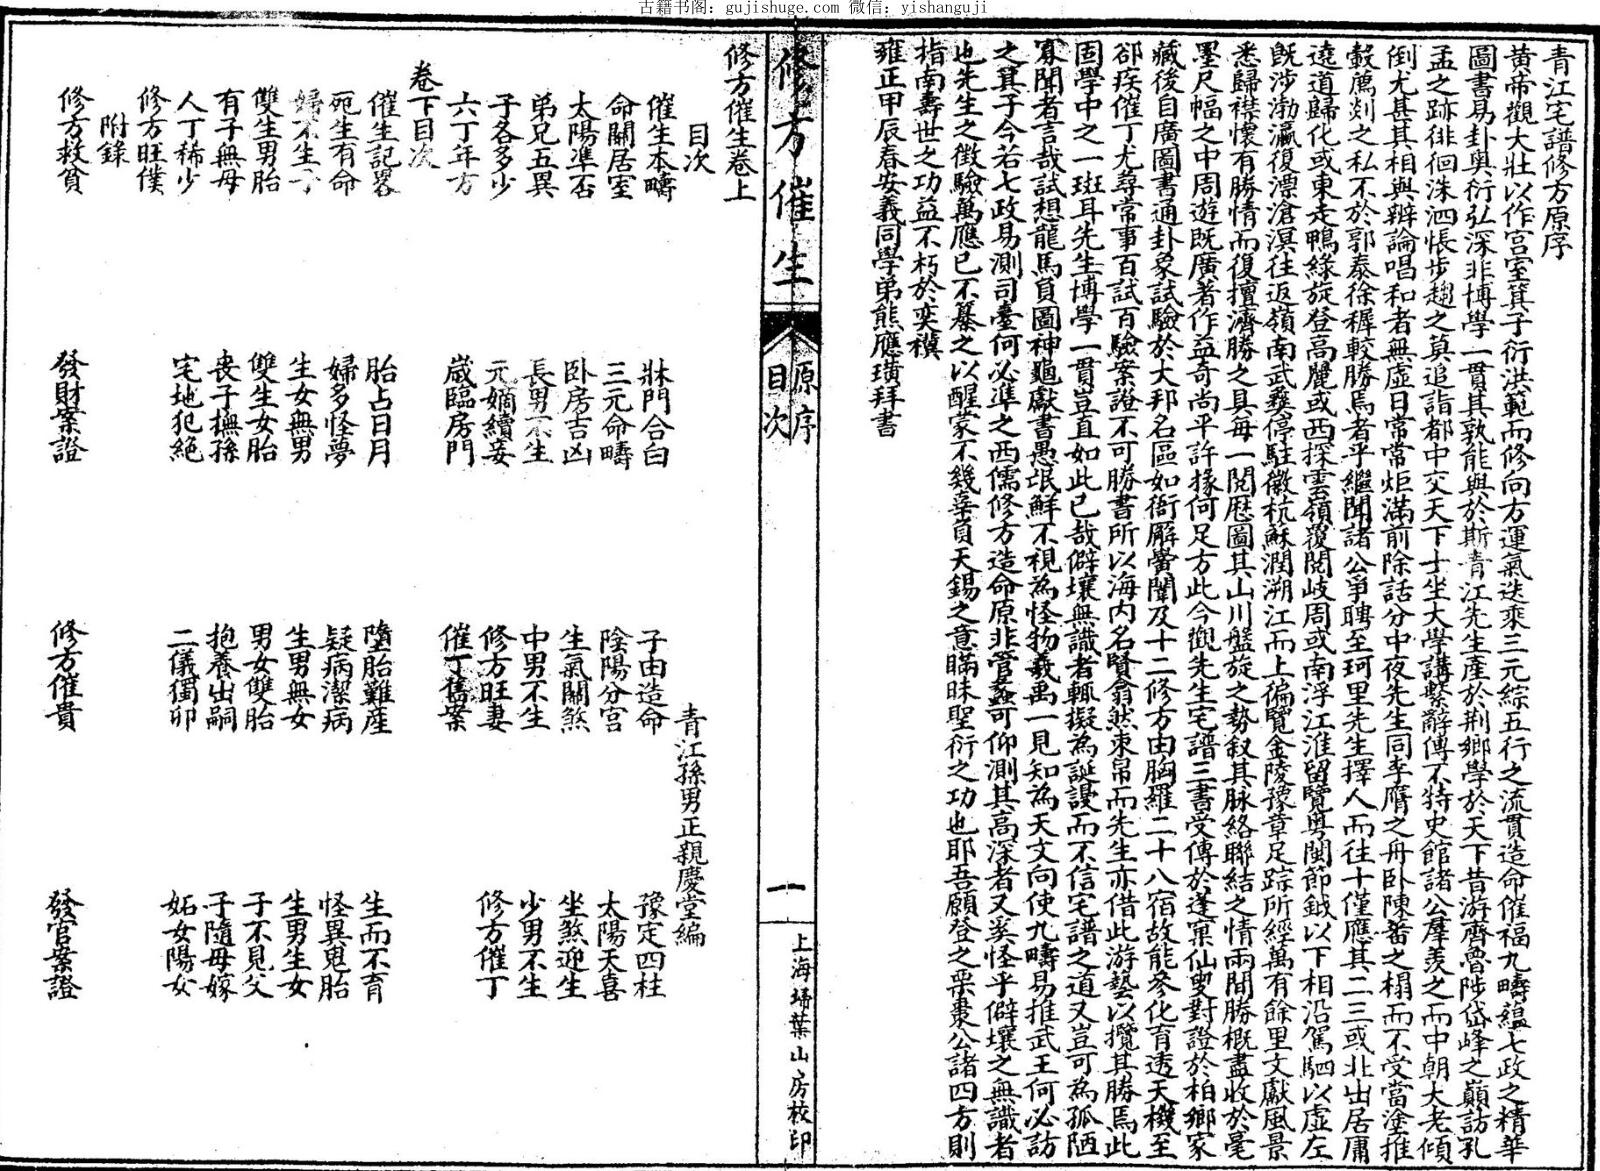 古籍书阁：gujishuge.com 微信：yishanguji
青江宅譜修方原序
黃帝觀大壯以作宮室箕子衍洪範而修向方運氣迭乘三元綜五行之流貫造命催福九疇蘊七政之精華
圖書易卦奧衍弘深非博學一貫其孰能與於斯青江先生產於荆鄉學於天下昔游齊魯陟岱峰之巔訪孔
孟之跡徘徊洙泗悵步趨之莫追詣都中交天下士坐大學講繫辭傳不特史館諸公羣羨之而中朝大老傾
倒尤甚其相與辨論唱和者無虛日常常炬滿前除話分中夜先生同李膺之舟卧陳蕃之榻而不受當塗推
轂薦剡之私不於郭泰徐穉較勝焉者乎繼聞諸公爭聘至珂里先生擇人而往十僅應其二三或北出居庸
遠道歸化或東走鴨綠旋登高麗或西探雲嶺覆閱岐周或南浮江淮留覽粤閩節鉞以下相沿駕駟以虛左
既涉渤瀛復漂滄溟往返嶺南武彝停駐徽杭蘇潤溯江而上徧覽金陵豫章足踪所經萬有餘里文獻風景
悉歸襟懷有勝情而復擅濟勝之具每一閱歷圖其山川盤旋之勢叙其脉絡聯結之情兩間勝概盡收於毫
墨尺幅之中周遊既廣著作益奇尚平許掾何足方此今觀先生宅譜三書受傳於蓬窠仙叟對證於柏鄉家
藏後自廣圖書通卦象試驗於大邦名區如衙廨黌闈及十二修方由胸羅二十八宿故能參化育透天機至
郤疾催丁尤尋常事百試百驗案證不可勝書所以海內名賢翕然束帛而先生亦借此游藝以攬其勝焉此
固學中之一斑耳先生博學一貫豈直如此已哉僻壤無識者輒擬為誕謾而不信宅譜之道又豈可為孤陋
寡聞者言哉試想龍馬負圖神龜獻書愚氓鮮不視為怪物羲禹一見知為天文向使九疇易推武王何必訪
之箕子今若七政易測司臺何必準之西儒修方造命原非管蠡可仰測其高深者又奚怪乎僻壤之無識者
也先生之徵驗萬應已不纂之以醒蒙不幾辜負天錫之意瞞昧聖衍之功也耶吾願登之栗棗公諸四方則
指南壽世之功益不朽於奕禩
雍正甲辰春安義同學弟熊應璜拜書
修方催生
原序
目次
一
上海埽葉山房校印
修方催生卷上
青江孫男正親慶堂編
目次
催生本疇　牀門合白　子由造命　豫定四柱
命關居室　三元命疇　陰陽分宮　太陽天喜
太陽準否　卧房吉凶　生氣關煞　坐煞迎生
弟兄五異　長男不生　中男不生　少男不生
子各多少　元嫡續妾　修方旺妻　修方催丁
六丁年方　歲臨房門　催丁舊案
卷下目次
催生記畧　胎占日月　墮胎難產　生而不育
宛生有命　婦多怪夢　疑病潔病　怪異鬼胎
婦不生子　生女無男　生男無女　生男生女
雙生男胎　雙生女胎　男女雙胎　子不見父
有子無母　喪子撫孫　抱養出嗣　子隨母嫁
人丁稀少　宅地犯絕　二儀獨卯　妬女陽女
修方旺僕
附錄
修方救貧　發財案證　修方催貴　發官案證